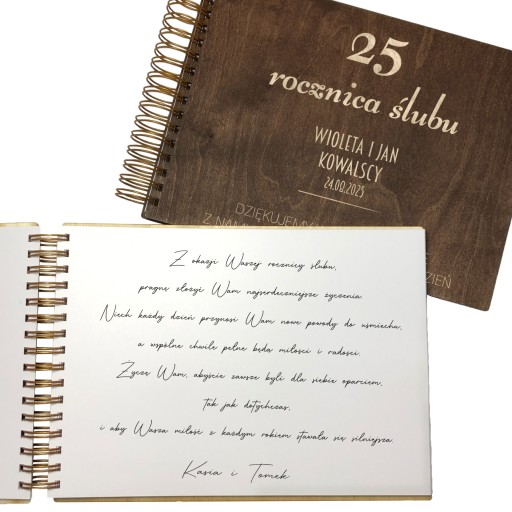 25
rocznica ślubu
WIOLETA I JAN
KOWALSCY
24.08.2025
DZIĘKUJEMY
Z NAMI
DZIEŃ
Z okazji Waszej rocznicy ślubu,
pragnę złożyć Wam najserdeczniejsze życzenia
Niech każdy dzień przynosi Wam nowe powody do uśmiechu,
a wspólne chwile pełne będą miłości i radości.
Życzę Wam, abyście zawsze byli dla siebie oparciem,
tak jak dotychczas,
i aby Wasza miłość z każdym rokiem stawała się silniejsza.
Kasia i Tomek